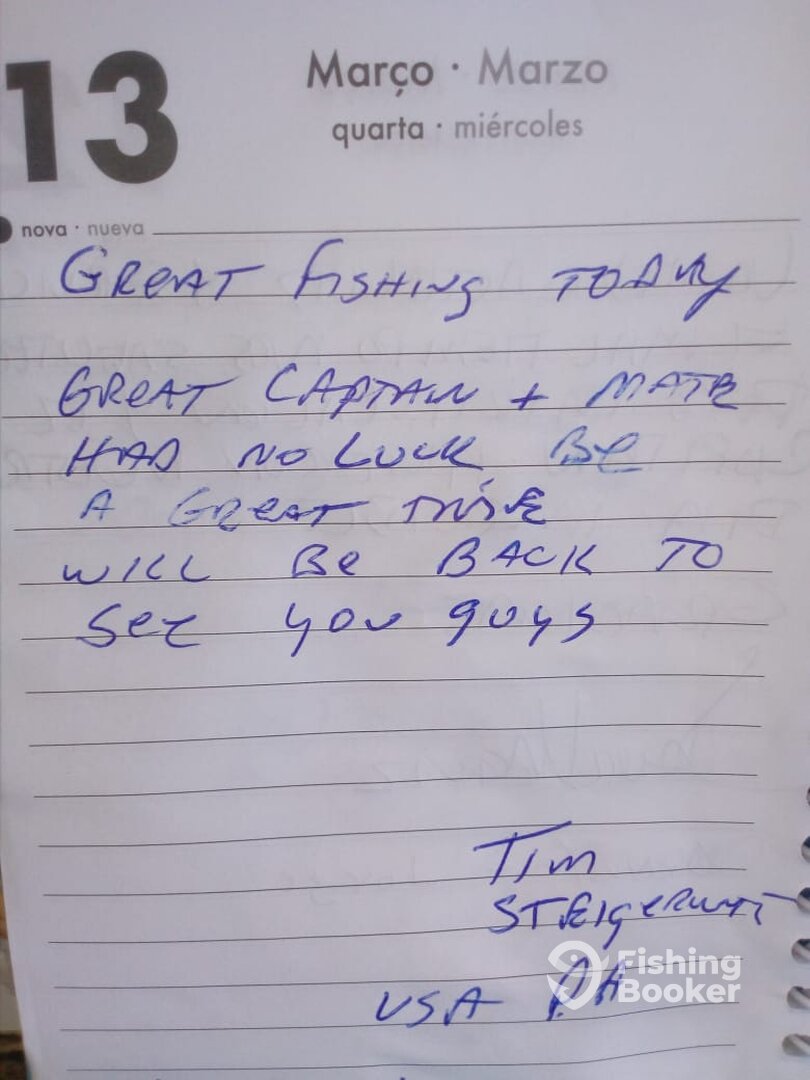 13
Março · Marzo
quarta · miércoles
nova · nueva
GREAT FISHING TODAY
GREAT CAPTAIN + MATE
HAD NO LUCK BE
A GREAT TIME
WILL BE BACK TO
SEE YOU guys
TIM
USA PA
Fishing
Booker